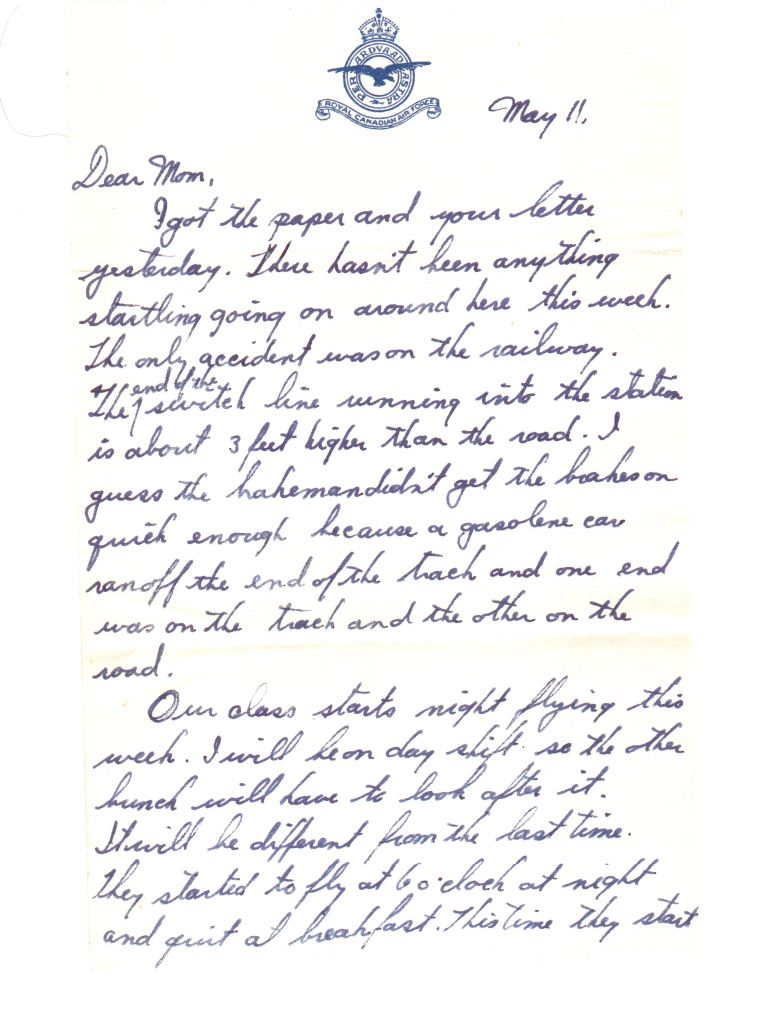 PER ARDVA AD ASTRA
ROYAL CANADIAN AIR FORCE
May 11.
Dear Mom,
I got the paper and your letter
yesterday. There hasn't been anything
startling going on around here this week.
The only accident was on the railway.
end of the
The switch line running into the station
is about 3 feet higher than the road. I
guess the brakeman didn't get the brakes on
quick enough because a gasolene car
ran off the end of the track and one end
was on the track and the other on the
road.
Our class starts night flying this
week. I will be on day shift so the other
bunch will have to look after it.
It will be different from the last time.
They started to fly at 6 o'clock at night
and quit at breakfast. This time they start